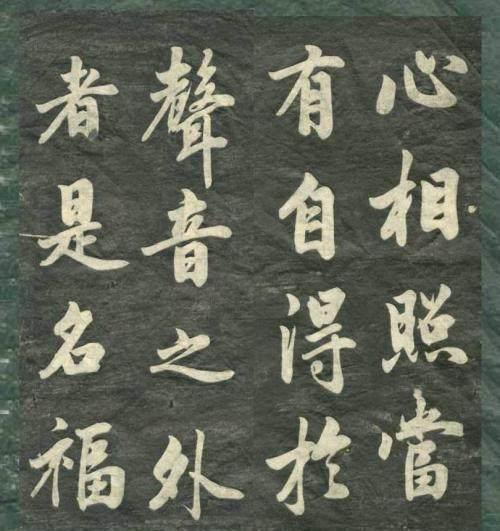 心相照當
有自得於
聲音之外
者是名福